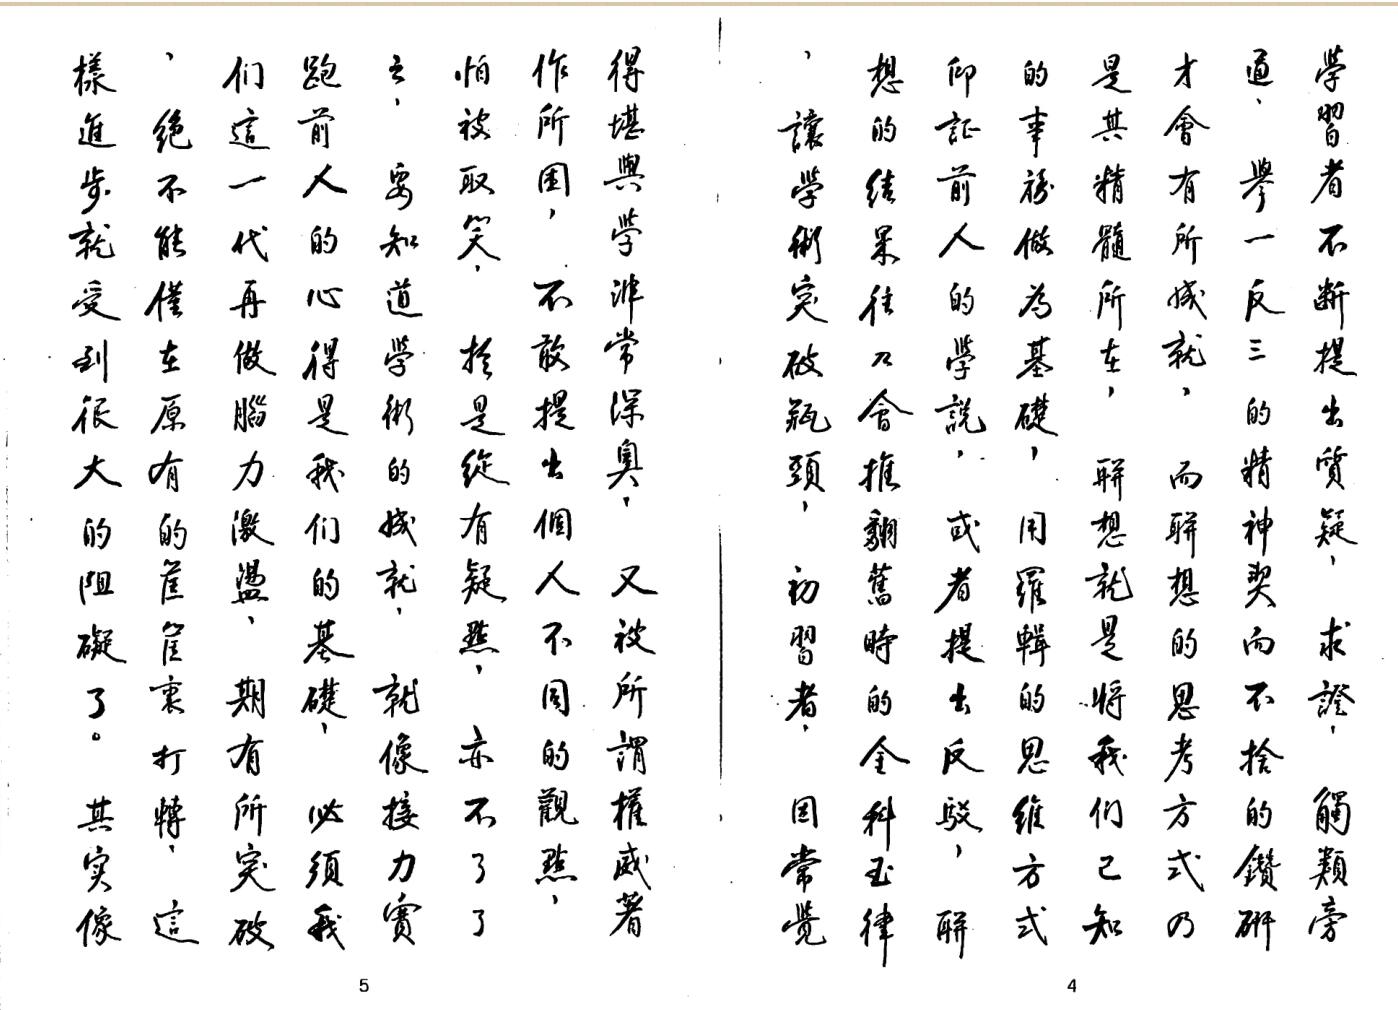 學習者不斷提出質疑，求證，觸類旁
通，舉一反三的精神契而不捨的鑽研
才會有所成就，而聯想的思考方式乃
是其精髓所在，聯想就是將我们己知
的事務做為基礎，用羅輯的思維方式
印証前人的學説，或者提出反駁，聯
想的结果往乃會推翻舊時的金科玉律
，讓學術突破瓶頸，初習者，因常覺
4
得堪輿學非常深奧，又被所謂權威著
作所困，不敢提出個人不同的觀點，
怕被取笑，於是縱有疑點，亦不了了
之，要知道學術的成就，就像接力賽
跑前人的心得是我们的基礎，必須我
们這一代再做腦力激盪，期有所突破
，绝不能僅在原有的筐筐裏打轉，這
樣進步就受到很大的阻礙了。其实像
5